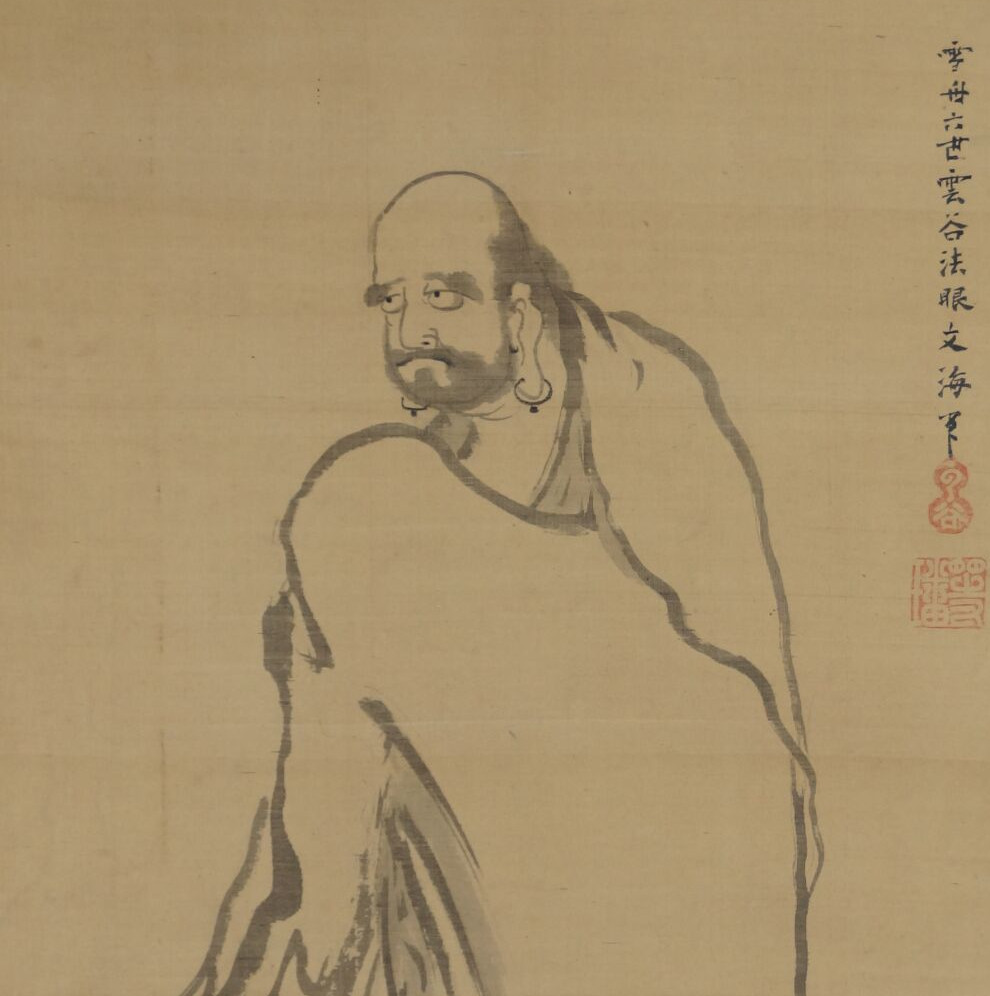 雪舟六世雲谷法眼文海筆